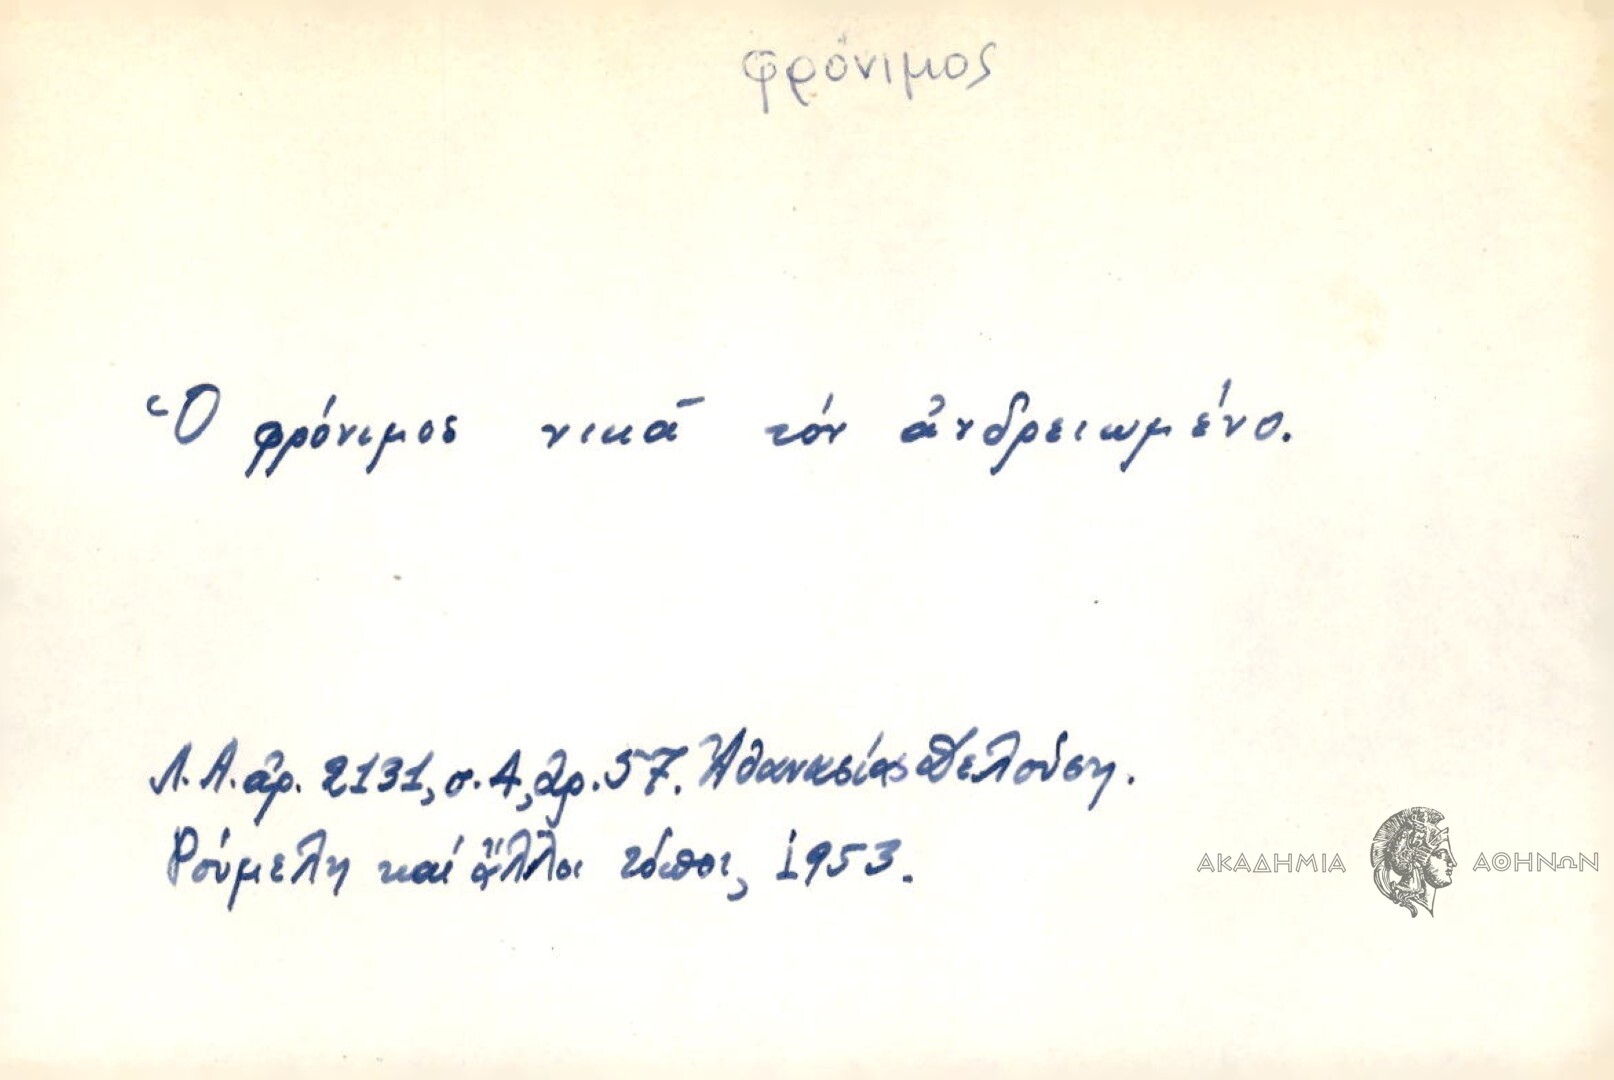 φρόνιμος
Ὁ φρόνιμος νικᾶ τόν ἀνδρειωμένο.
Λ.Α. ἀρ. 2131, σ. 4, ἀρ. 57. Ἀθανασίας Δελούση.
Ρούμελη καί ἄλλοι τόποι, 1953.
ΑΚΑΔΗΜΙΑ ΑΘΗΝΩΝ